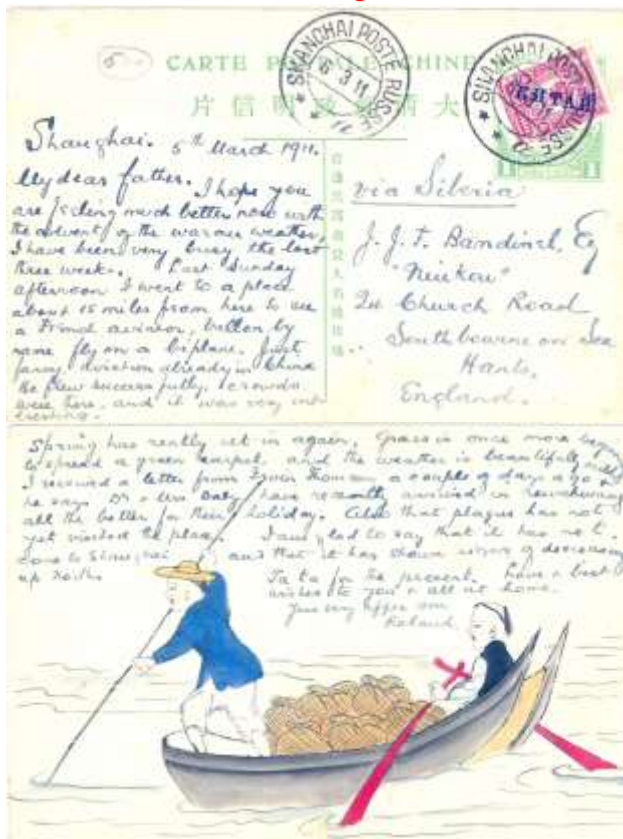 CARTE POSTALE CHINE
大清郵政明信片
SHANGHAI POSTE RUSSE
6 3 11
SHANGHAI POSTE RUSSE
КИТАЙ
1
5
Shanghai. 5th March 1911.
My dear father. I hope you
are feeling much better now with
the advent of the warmer weather.
I have been very busy the last
three weeks. Last Sunday
afternoon I went to a place
about 15 miles from here to see
a French aviator, by
name fly on a biplane. Just
fancy, aviation already in China
He flew successfully, crowds
were there, and it was very int
eresting.
via Siberia
J. J. F. Bandinel, Esq
"Neukou"
24 Church Road
Southbourne on Sea
Hants,
England.
Spring has really set in again. Grass is once more begin
to spread a green carpet, and the weather is beautifully mild
I received a letter from a couple of days ago &
he says Dr & Mrs have recently arrived in
all the better for their holiday. Also that plague has not
yet visited the place. I am glad to say that it has not
come to Shanghai and that it has shown signs of decreasing
up North.
Ta ta for the present. Love & best
wishes to you & all at home.
Your very affec son
Roland.